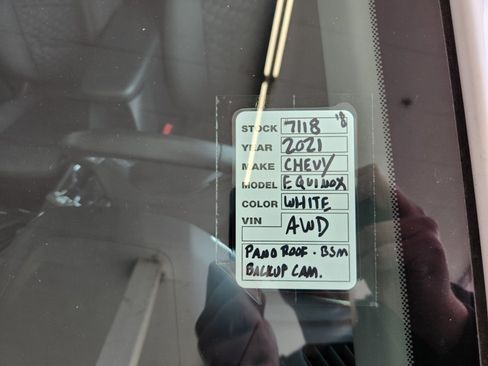 STOCK 7118
YEAR 2021
MAKE CHEVY
MODEL EQUINOX
COLOR WHITE
VIN AWD
PANO ROOF . BSM
BACKUP CAM.